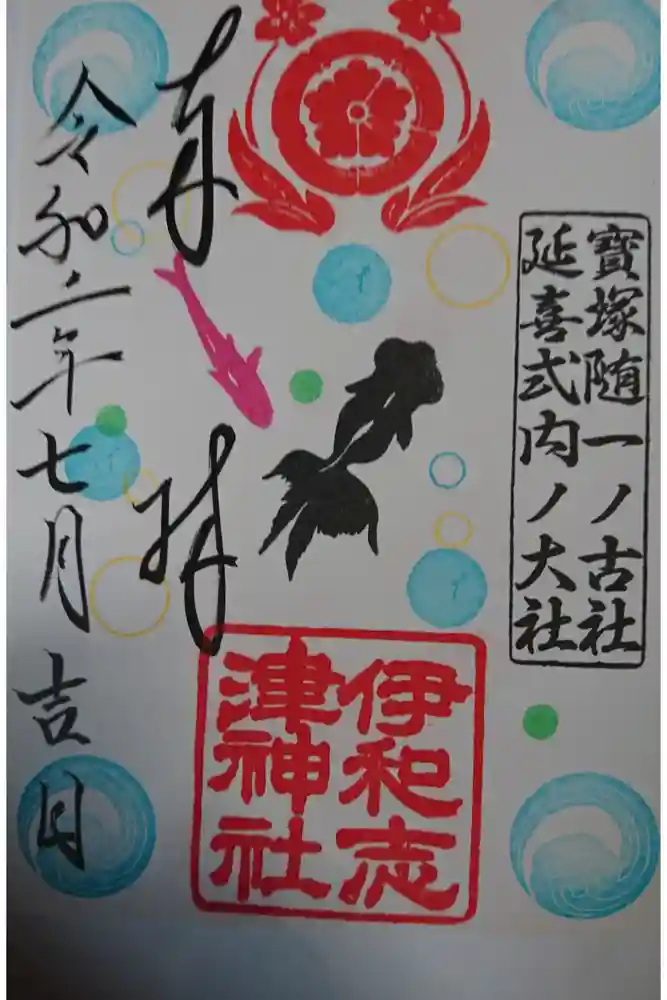 寶塚随一ノ古社
延喜式内ノ大社
奉拝
伊和志
津神社
令和二年七月吉日